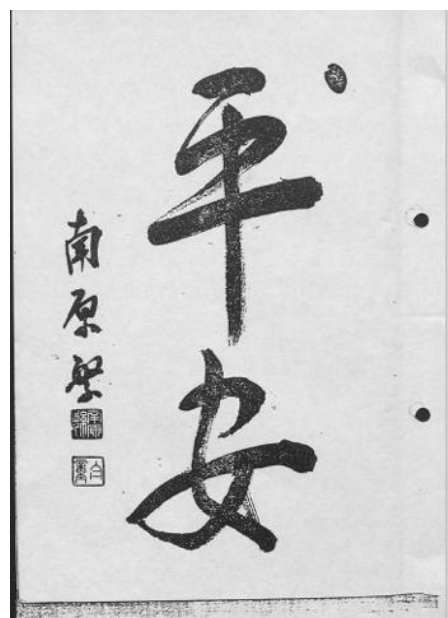 平安
南原繁